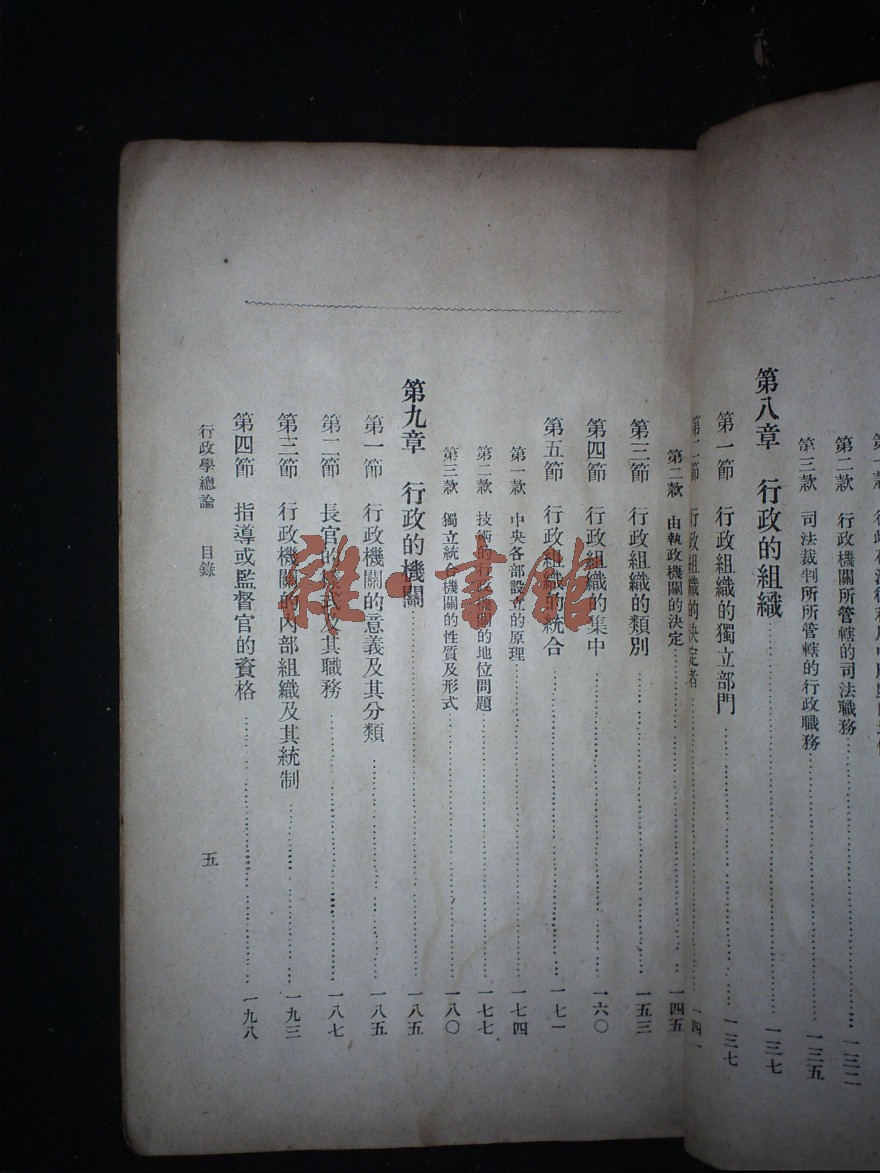 第二款 行政機關所管轄的司法職務 一三二
第三款 司法裁判所所管轄的行政職務 一三五
第八章 行政的組織 一三七
第一節 行政組織的獨立部門 一三七
第二節 行政組織的決定者 一四一
第二款 由執政機關的決定 一四五
第三節 行政組織的類別 一五三
第四節 行政組織的集中 一六〇
第五節 行政組織的統合 一七一
第一款 中央各部設立的原理 一七四
第二款 技術的行政機關的地位問題 一七七
第三款 獨立統合機關的性質及形式 一八〇
第九章 行政的機關 一八五
第一節 行政機關的意義及其分類 一八五
第二節 長官的樣式及其職務 一八七
第三節 行政機關的內部組織及其統制 一九三
第四節 指導或監督官的資格 一九八
行政學總論 目錄 五
雜·書館